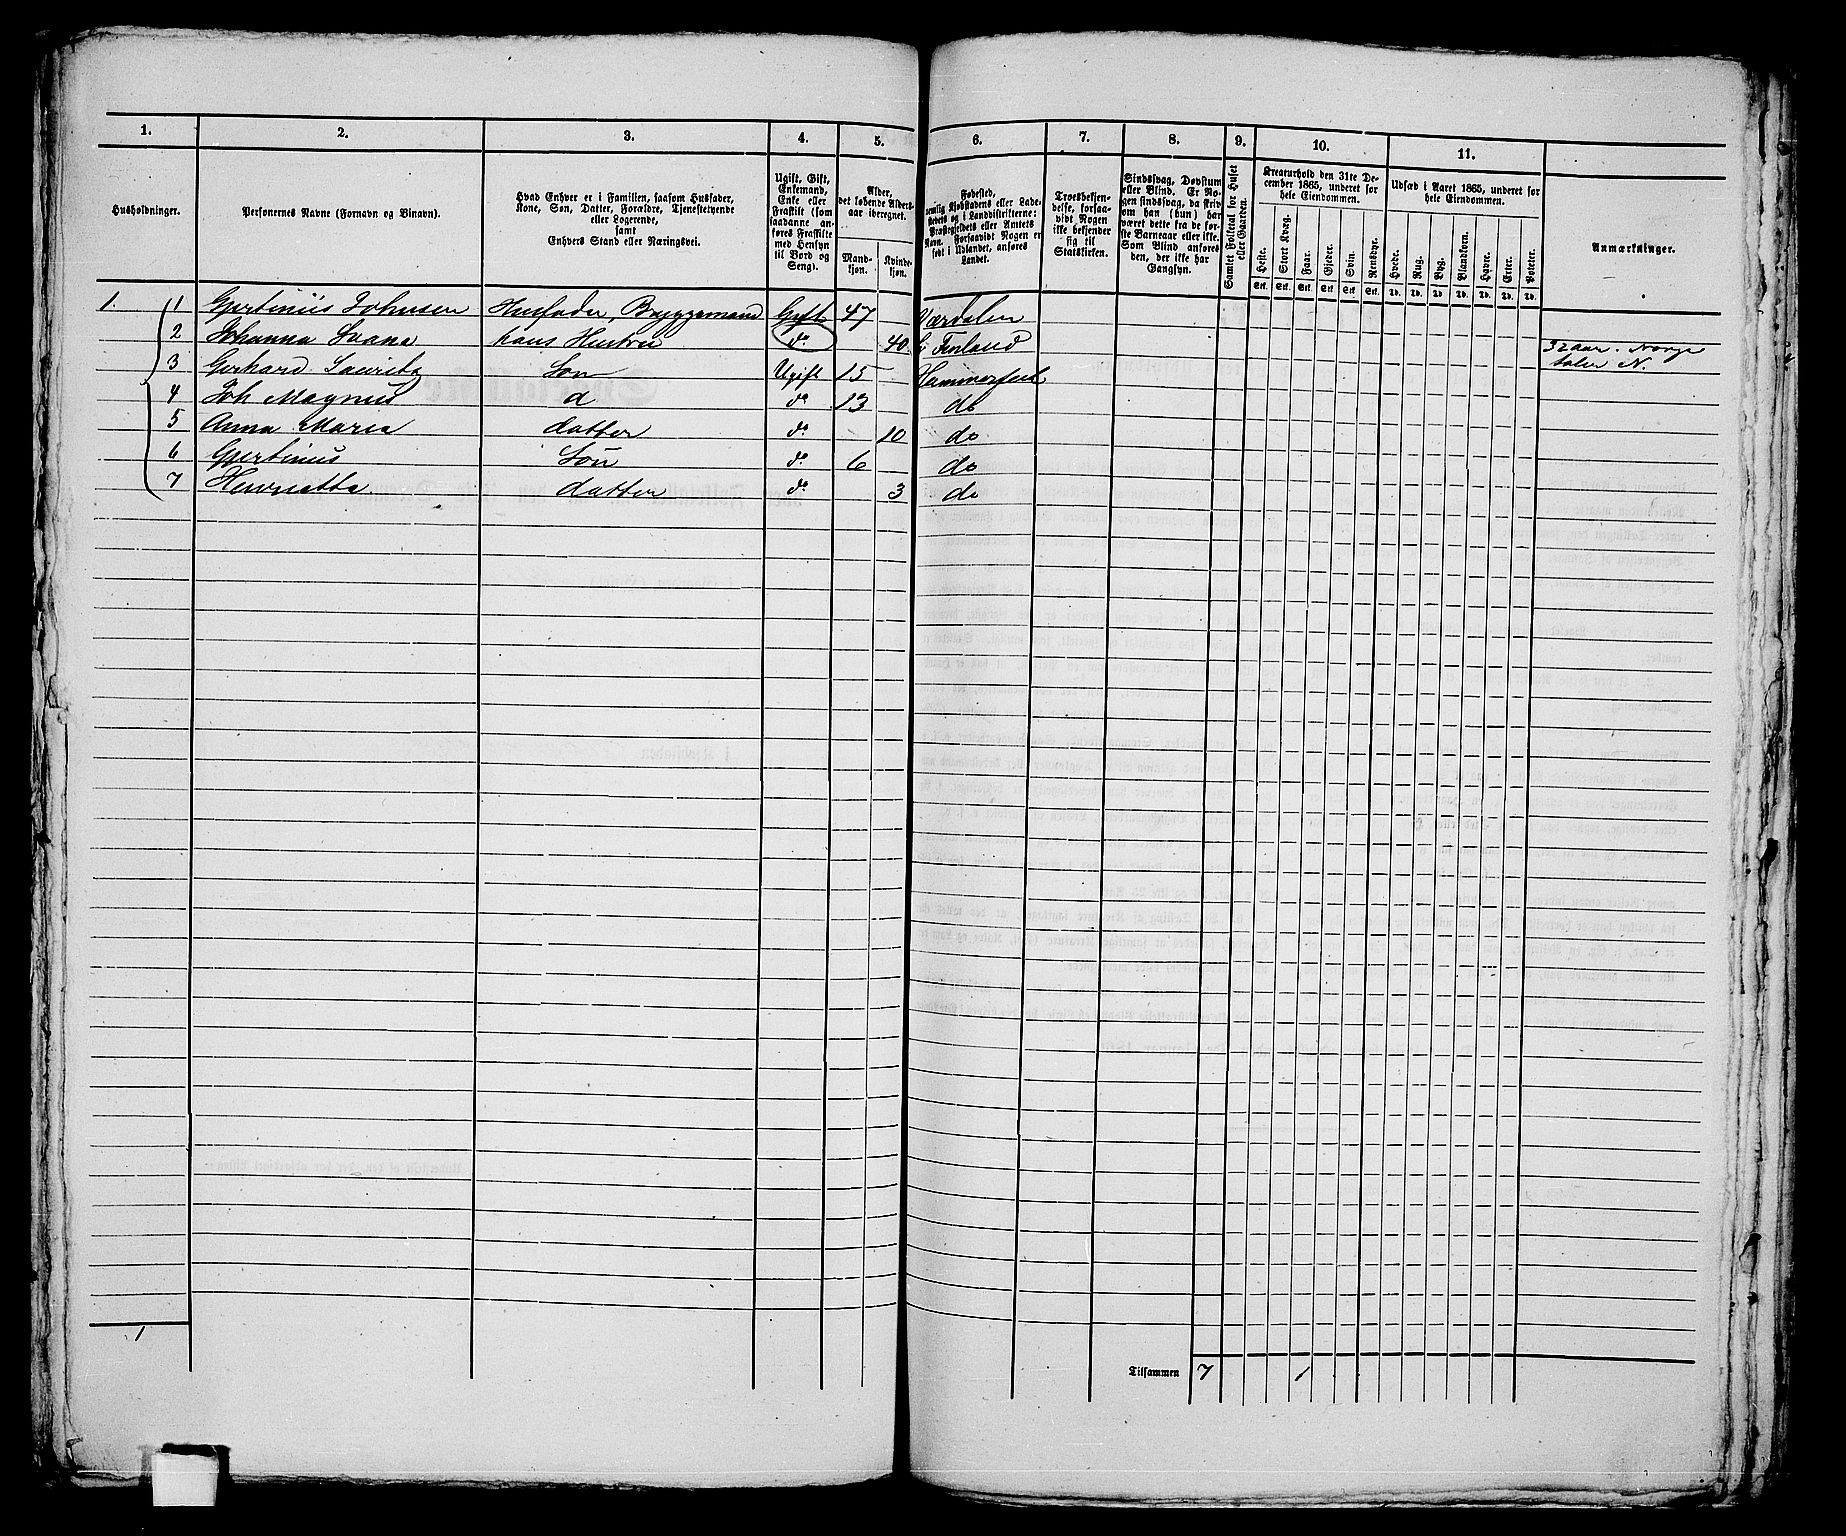 1. 2. 3. 4. 5. 6. 7. 8. 9. 10. 11.
Husholdninger.
Personernes Navne (Fornavn og Binavn).
Hvad Enhver er i Familien, saasom Husfader,
Kone, Søn, Datter, Forældre, Tjenestetyende
eller Logerende,
samt
Enhvers Stand eller Næringsvei.
Ugift, Gift,
Enkemand,
Enke eller
Fraskilt (som
saadanne an-
føres Fraskilte
med Hensyn
til Bord og
Seng).
Alder,
det løbende Alders-
aar iberegnet.
Mand-
kjøn.
Kvinde-
kjøn.
Fødested,
nemlig Kjøbstadens eller Lade-
stedets og i Landdistrikterne:
Præstegjeldets eller Amtets
Navn. Forsaavidt Nogen er
født i Udlandet, anføres
Landet.
Troesbekjen-
delse, forsaa-
vidt Nogen
ikke bekjender
sig til
Statskirken.
Sindssvag, Døvstum
eller Blind. Er No-
gen sindssvag, da skriv
om han (hun) har
været dette fra de før-
ste Barneaar eller ikke.
Som Blind anføres
den, der ikke har
Gangsyn.
Samlet Folketal for Huset
eller Gaarden.
Kreaturhold den 31te De-
cember 1865, underet for
hele Eiendommen.
Heste. Stort Kvæg. Faar. Gjeder. Svin. Rensdyr.
Stk. Stk. Stk. Stk. Stk. Stk.
Udsæd i Aaret 1865, underet for
hele Eiendommen.
Hvede. Rug. Byg. Blandkorn. Havre. Erter. Poteter.
Td. Td. Td. Td. Td. Td. Td.
Anmærkninger.
1. 1 Gjertinius Johnsen Husfader, Bryggemand Gift 47 Værdalen
2 Johanna Ivana hans Hustru do 40 Finland 32 aar i Norge
taler N.
3 Gerhard Lauritz Søn Ugift 15 Hammerfest
4 Joh Magnus d do 13 do
5 Anna Maria datter do 10 do
6 Gjertinius Søn do 6 do
7 Henriette datter do 3 do
1
Tilsammen 7 1